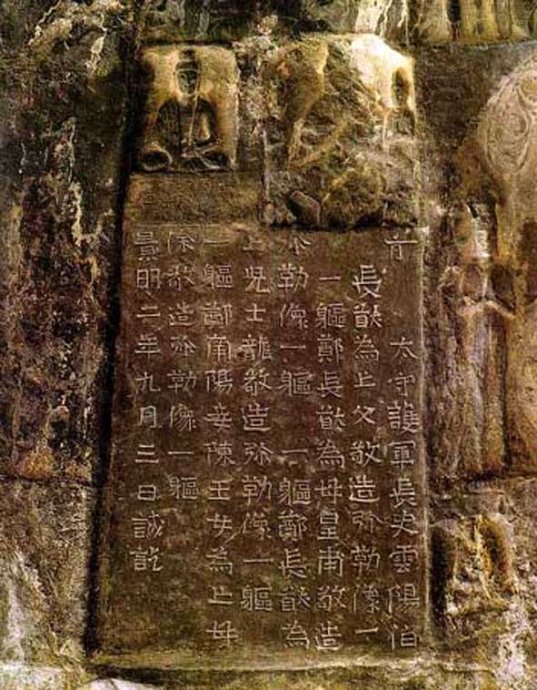 前 太守護軍長史雲陽伯
長猷為亡父敬造弥勒像一
一軀鄭長猷為母皇甫敬造
弥勒像一軀 一軀鄭長猷為
亡兒士龍敬造弥勒像一軀
一軀鄭南陽妾陳玉女為亡母
徐敬造弥勒像一軀
景明二年九月三日誡訖